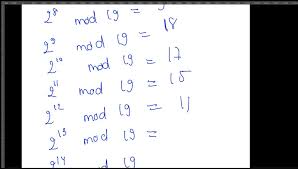 2^8 mod 19 =
2^9 mod 19 = 18
2^10 mod 19 = 17
2^11 mod 19 = 15
2^12 mod 19 = 11
2^13 mod 19 =
2^14 mod 19